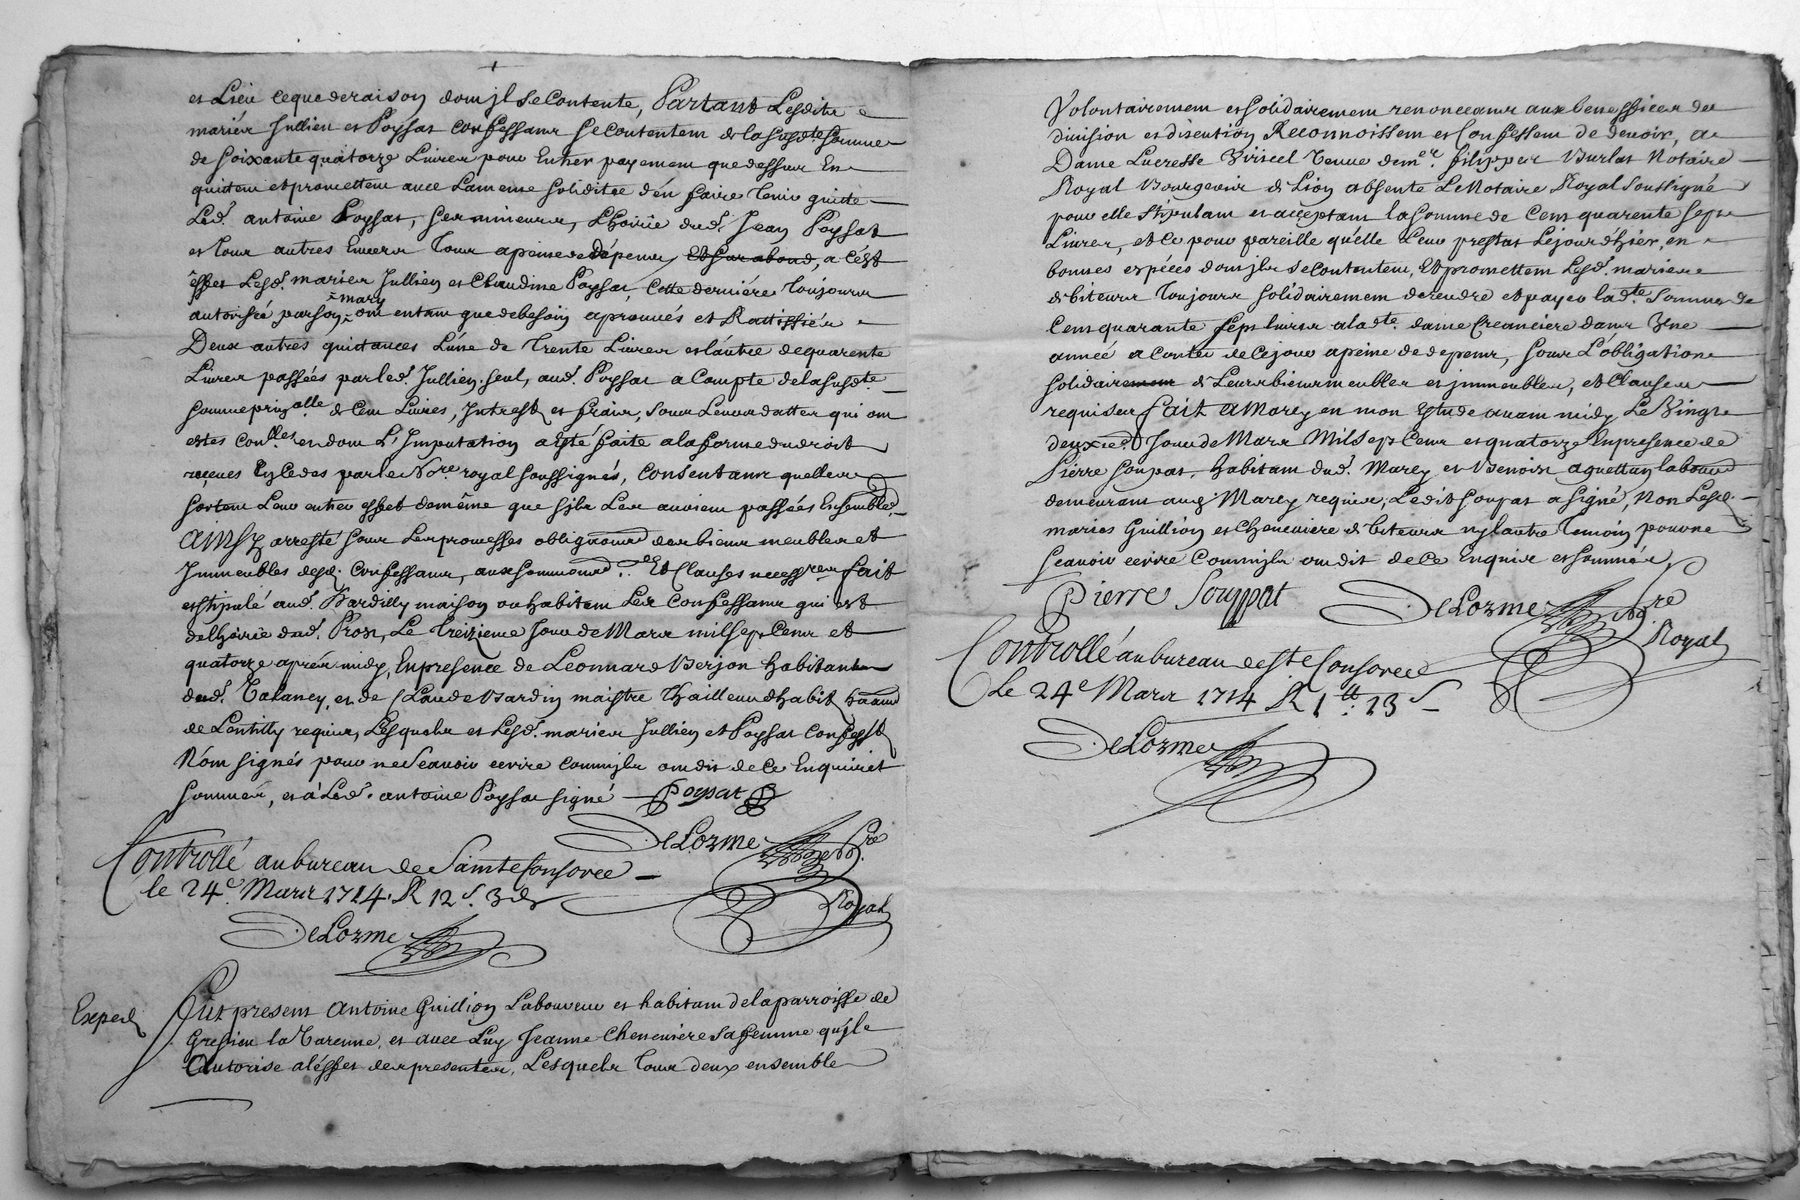 et Lieu ce que de raison dont jl se Contente, Partant Lesdits
mariés Jullien et Poyssat Confessants se Contentent de la susdte somme
de soixante quatorze Livres pour Entier payement que dessus En
quittent et promettent avec La meme soliditée d'en faire tenir quitte
Led. antoine Poyssat, ses mineurs, L'hoirie dud. Jean Poyssat
et tous autres Envers tous apeine de dépens, Et sur abond, a C'est
éffet Lesd. mariés Jullien et Claudine Poyssat, Cette derniére toujours
autorisée par son mary ont entant que de besoin aprouvés et Rattiffiés
Deux autres quittances L'une de trente Livres et l'autre de quarente
Livres passées par led. Jullien seul, aud. Poyssat a Compte de la susdte
somme prinalle de Cent Livres, Intrest et frais, sous Leurs dattes qui ont
estés Conllées et dont L'Imputation a Esté faite a la forme du droit
reçeues Icelles par le Nore. royal soussigné, Consentants quelles
sortent Leur entier effet de même que s'ils Les avoient passées Ensembles
Ainsy arresté sous Les promesses obligaons des biens meubles et
Immeubles desd. Confessants, aux soumions Et Clauses necessres fait
et stipulé aud. Dardilly maison ou habitent Les Confessants qui est
de L'hoirie dud. Pros, Le treizieme Jour de Mars mil sept Cent et
quatorze aprés midy, En presence de Leonnard Berjon habitant
dud. Talaney, et de Claude Bardin maistre thailleur d'habit haant
de Lentilly requis, Lesquels et Lesd. mariés Jullien et Poyssat Confesst
N'ont signés pour ne sçavoir ecrire comm'jls ont dit de ce Enquis et
sommés, et a Led. antoine Poyssat signé Poysat
DeLorme Nore
Royal
Controllé au bureau de Sainte Consorce
le 24e Mars 1714. R 12 s. 3 d
DeLorme
Exped
Fut present Antoine Guillion Laboureur et habitant de la parroisse de
Gresieu la Varenne, et avec Luy Jeanne Cheneviére sa femme qu'jl
autorise a l'éffet des presentes, Lesquels tous deux ensemble
Volontairement et solidairement renonceants aux benefices de
division et discution Reconnoissent et Confessent de devoir, a
Dame Lucresse Viricel Venue de mer. filipper Burlat Notaire
Royal Bourgeois de Lion absente Le Notaire Royal Soussigné
pour elle stipulant et acceptant la somme de Cent quarente sept
Livres, et ce pour pareille qu'elle Leur prestat Le jour d'hier, en
bonnes espéces dont jls se Contentent, Et promettent Lesd. mariés
debiteurs toujours solidairement de rendre et payer lad.te somme de
Cent quarante sept livres a lad.te dame Creanciere dans Une
année a Conter de ce jour apeine de depens, sous L'obligation
solidairement de Leurs biens meubles et jmmeubles, et Clauses
requises fait a Marcy en mon Estude avant midy Le Vingt
deuxie. Jour de Mars Mil sept Cent et quatorze En presence de
Pierre Soupat, habitant dud. Marcy et Benoist aguettan laboureur
demeurant aud. Marcy requis, Ledit Soupat a signé, Non Lesd.
mariés Guillion et Cheneviere debiteurs ny l'autre temoin pour ne
sçavoir ecrire Comm'jls ont dit de ce Enquis et sommés
Pierre Souppat DeLorme Nore
Royal
Controllé au bureau de Ste Consorce
Le 24e Mars 1714 R 1 tt. 13 s
DeLorme